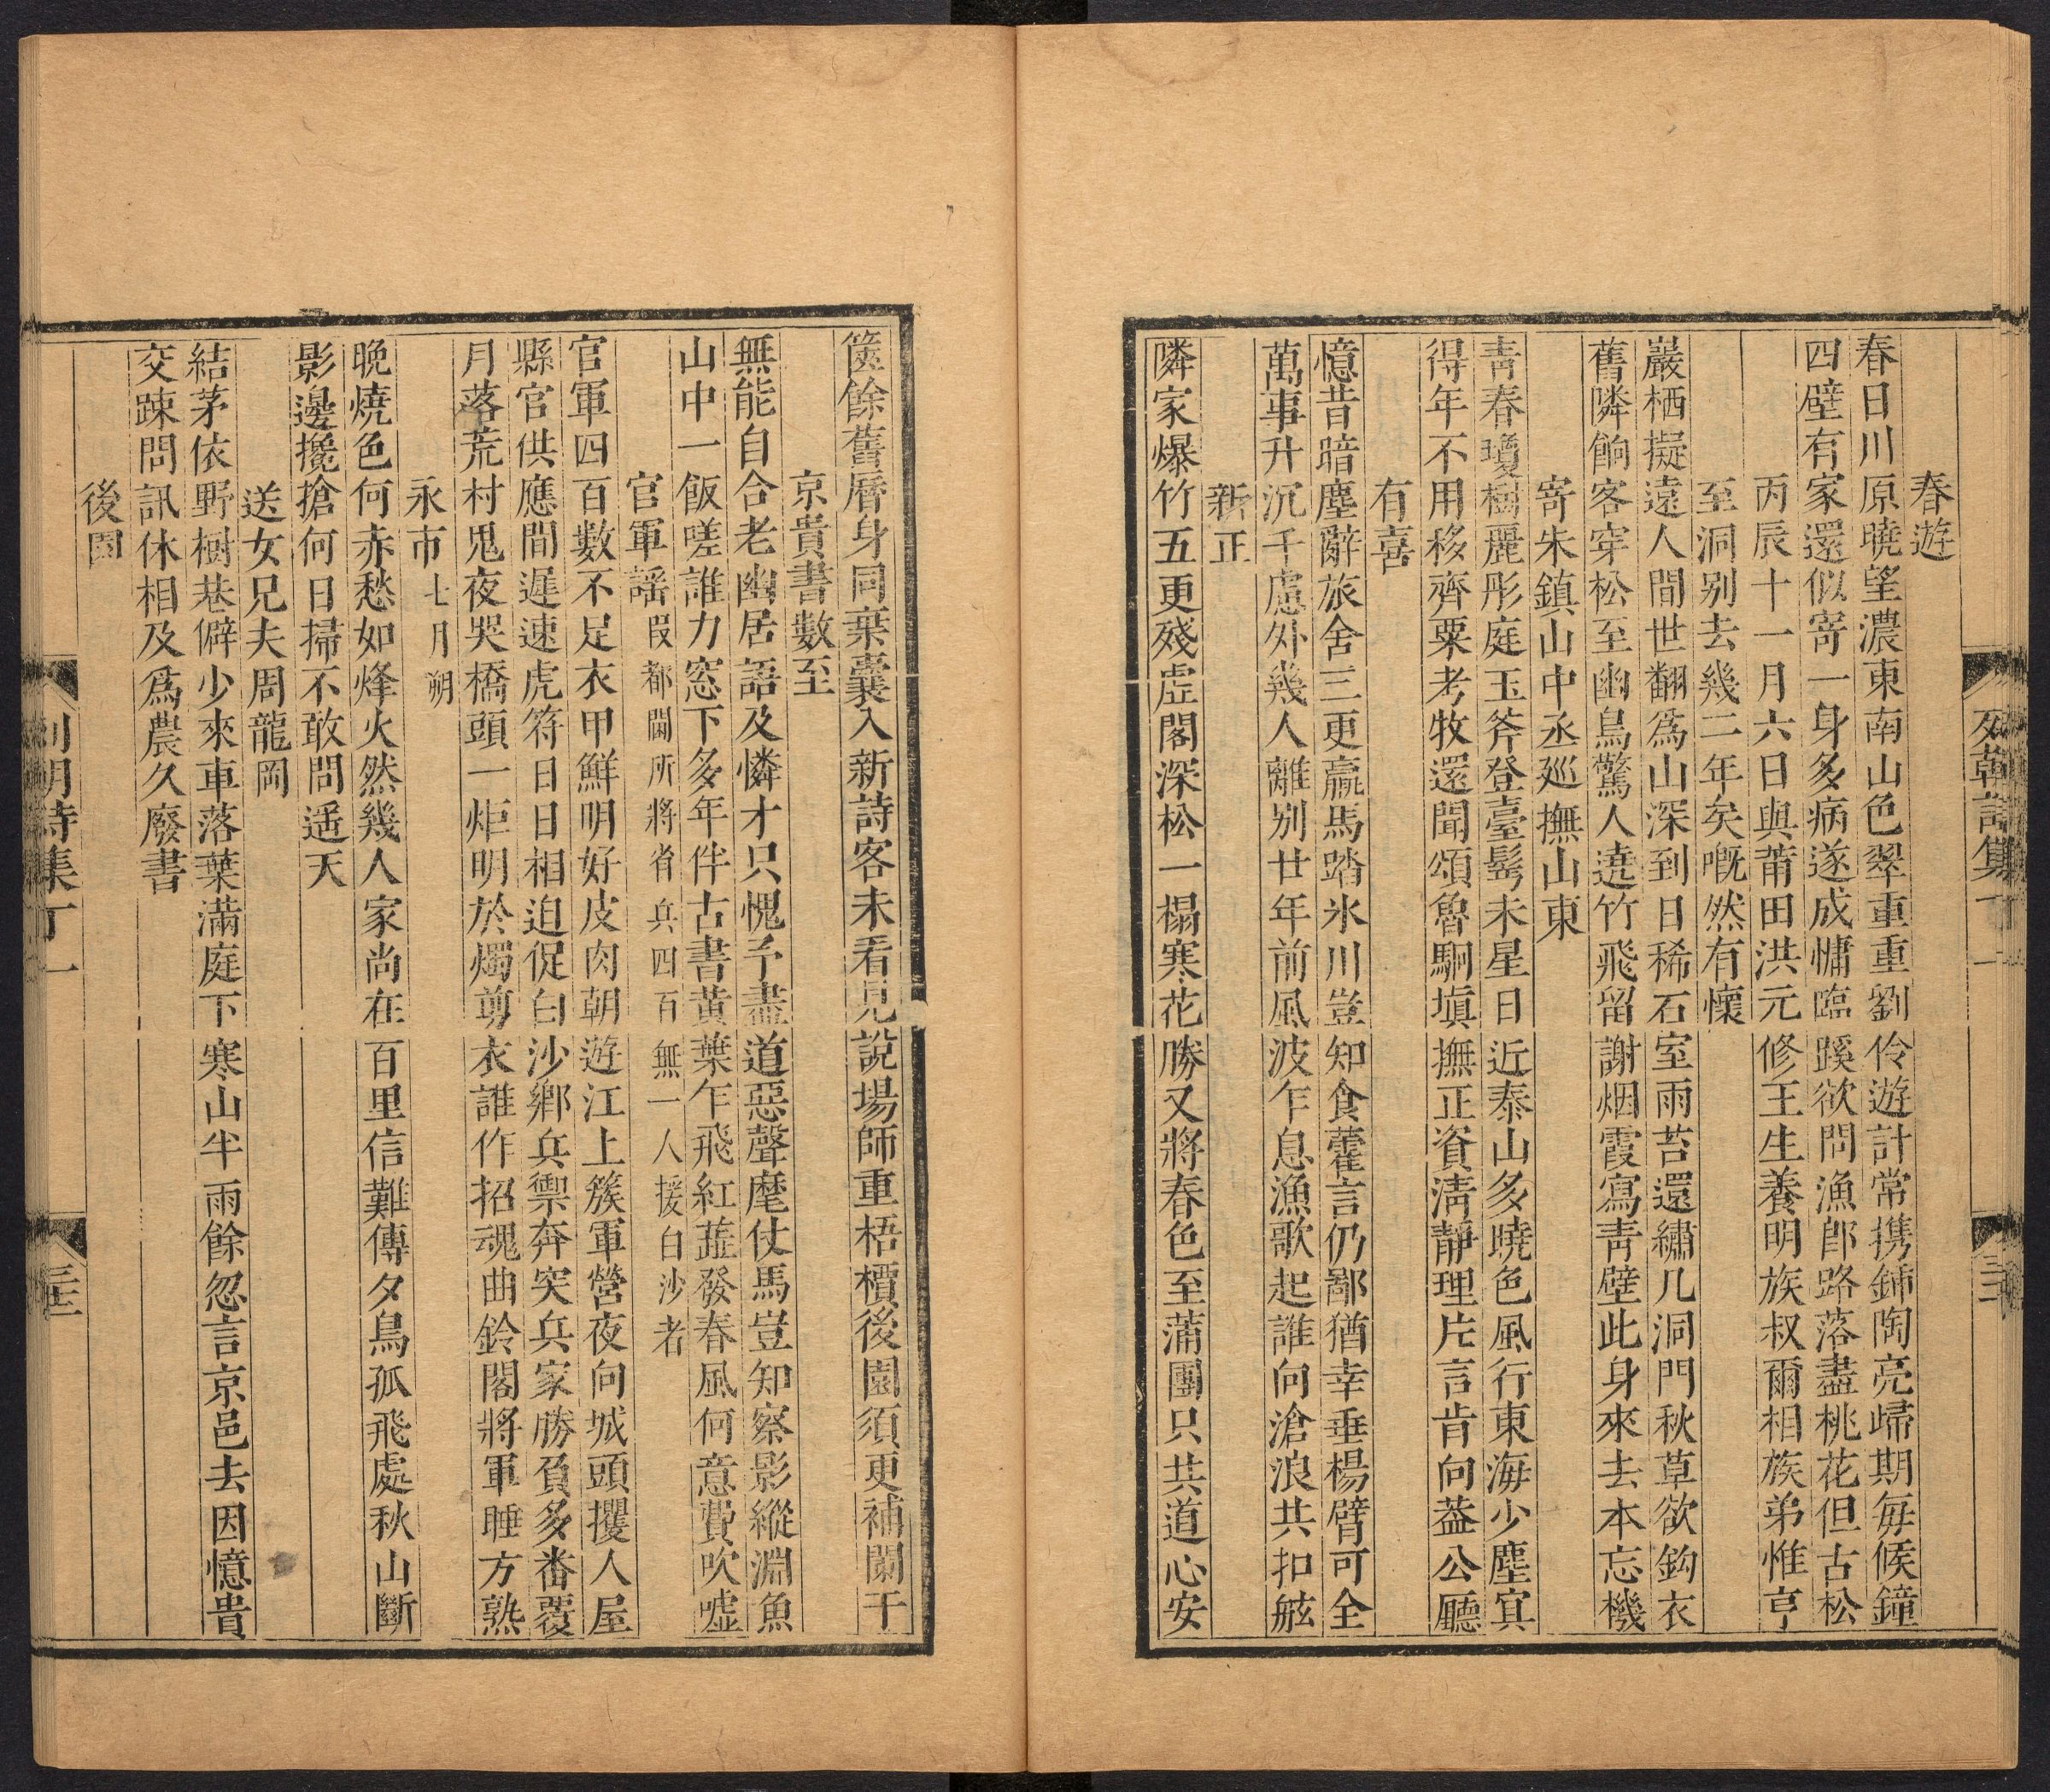 春遊
春日川原曉望濃東南山色翠重重劉伶遊計常携鍤陶亮歸期每候鐘
四壁有家還似寄一身多病遂成慵臨蹊欲問漁郎路落盡桃花但古松
丙辰十一月六日與莆田洪元修王生養明族叔爾相族弟惟亨
至洞别去幾二年矣嘅然有懷
巖栖擬遠人間世翻爲山深到日稀石室雨苔還繡几洞門秋草欲鈎衣
舊隣餉客穿松至幽鳥驚人遶竹飛留謝烟霞寫靑壁此身來去本忘機
寄朱鎮山中丞廵撫山東
靑春瓊樹麗彤庭玉斧登臺髩未星日近泰山多曉色風行東海少塵冥
得年不用移齊粟考牧還聞頌魯駉塡撫正資淸靜理片言肯向葢公廳
有喜
憶昔暗塵辭旅舍三更羸馬踏氷川豈知食藿言仍鄙猶幸垂楊臂可全
萬事升沉千慮外幾人離别廿年前風波乍息漁歌起誰向滄浪共扣舷
新正
隣家爆竹五更殘虛閣深松一榻寒花勝又將春色至蒲團只共道心安
篋餘舊曆身同棄囊入新詩客未看見說場師重梧檟後園須更補闌干
京貴書數至
無能自合老幽居語及憐才只愧予盡道惡聲麾仗馬豈知察影縱淵魚
山中一飯嗟誰力窓下多年伴古書黃葉乍飛紅蘤發春風何意費吹噓
官軍謡叚都閫所將省兵四百無一人援白沙者
官軍四百數不足衣甲鮮明好皮肉朝遊江上簇軍營夜向城頭攫人屋
縣官供應間遲速虎符日日相迫促白沙鄉兵禦奔突兵家勝負多畨覆
月落荒村鬼夜哭橋頭一炬明於燭剪衣誰作招魂曲鈴閣將軍睡方熟
永市七月朔
晚燒色何赤愁如烽火然幾人家尚在百里信難傳夕鳥孤飛處秋山斷
影邊攙搶何日掃不敢問遥天
送女兄夫周龍岡
結茅依野樹巷僻少來車落葉滿庭下寒山半雨餘忽言京邑去因憶貴
交踈問訊休相及爲農久廢書
後園
列朝詩集丁一